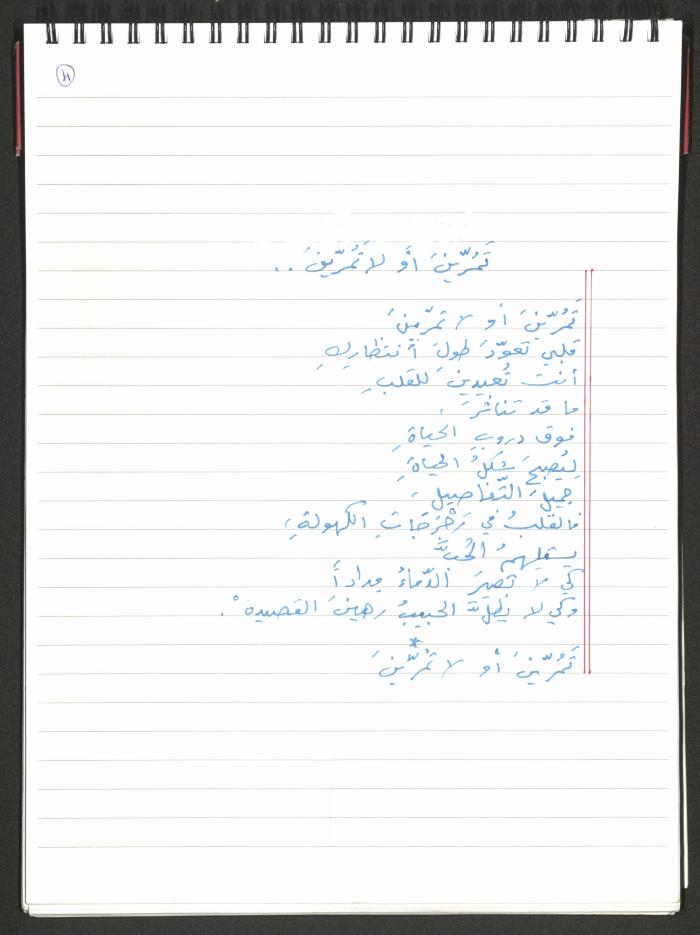 تَمُرّينَ أو لا تَمُرّينَ ..
تَمُرّينَ أو لا تمرّينَ
قلبي تعوّدَ طولَ انتظارِكِ
أنتِ تُعيدينَ للقلبِ
ما قد تناثرَ،
فوق دروبِ الحياةِ
ليُصبحَ شكلُ الحياةِ
جميلَ التّفاصيلِ،
فالقلبُ في الكهولةِ،
يستلهمُ الحُبَّ
كي لا تصيرَ الدّماءُ مِداداً
وكي لا يظلَّ الحبيبُ رهينَ القصيدهْ.
*
تَمُرّينَ أو لا تمُرّينَ